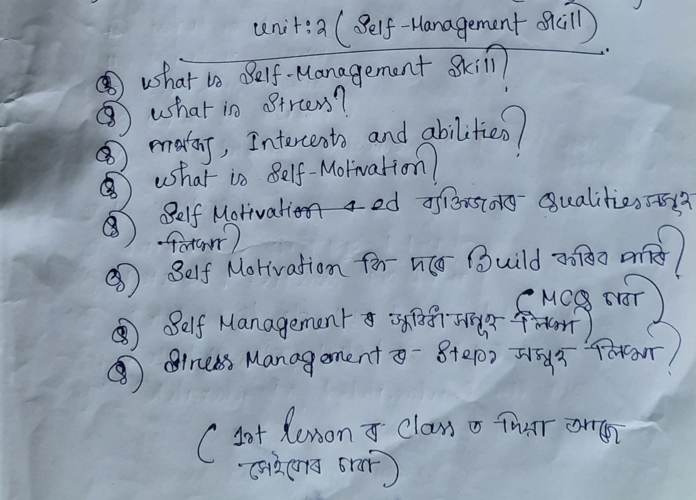 Unit: 2 (Self-Management Skill)
Q) What is Self-Management Skill?
Q) What is Stress?
Q) পাৰ্থক্য, Interests and abilities?
Q) What is Self-Motivation?
Q) Self Motivated ব্যক্তিজনৰ Qualities সমূহ
লিখা?
Q) Self Motivation কি দৰে Build কৰিব পাৰি?
(MCQ চাবা)
Q) Self Management ৰ সুবিধা সমূহ লিখা?
Q) Stress Management ৰ Steps সমূহ লিখা?
(1st lesson ৰ Class ত দিয়া আছে
সেইবোৰ চাবা)